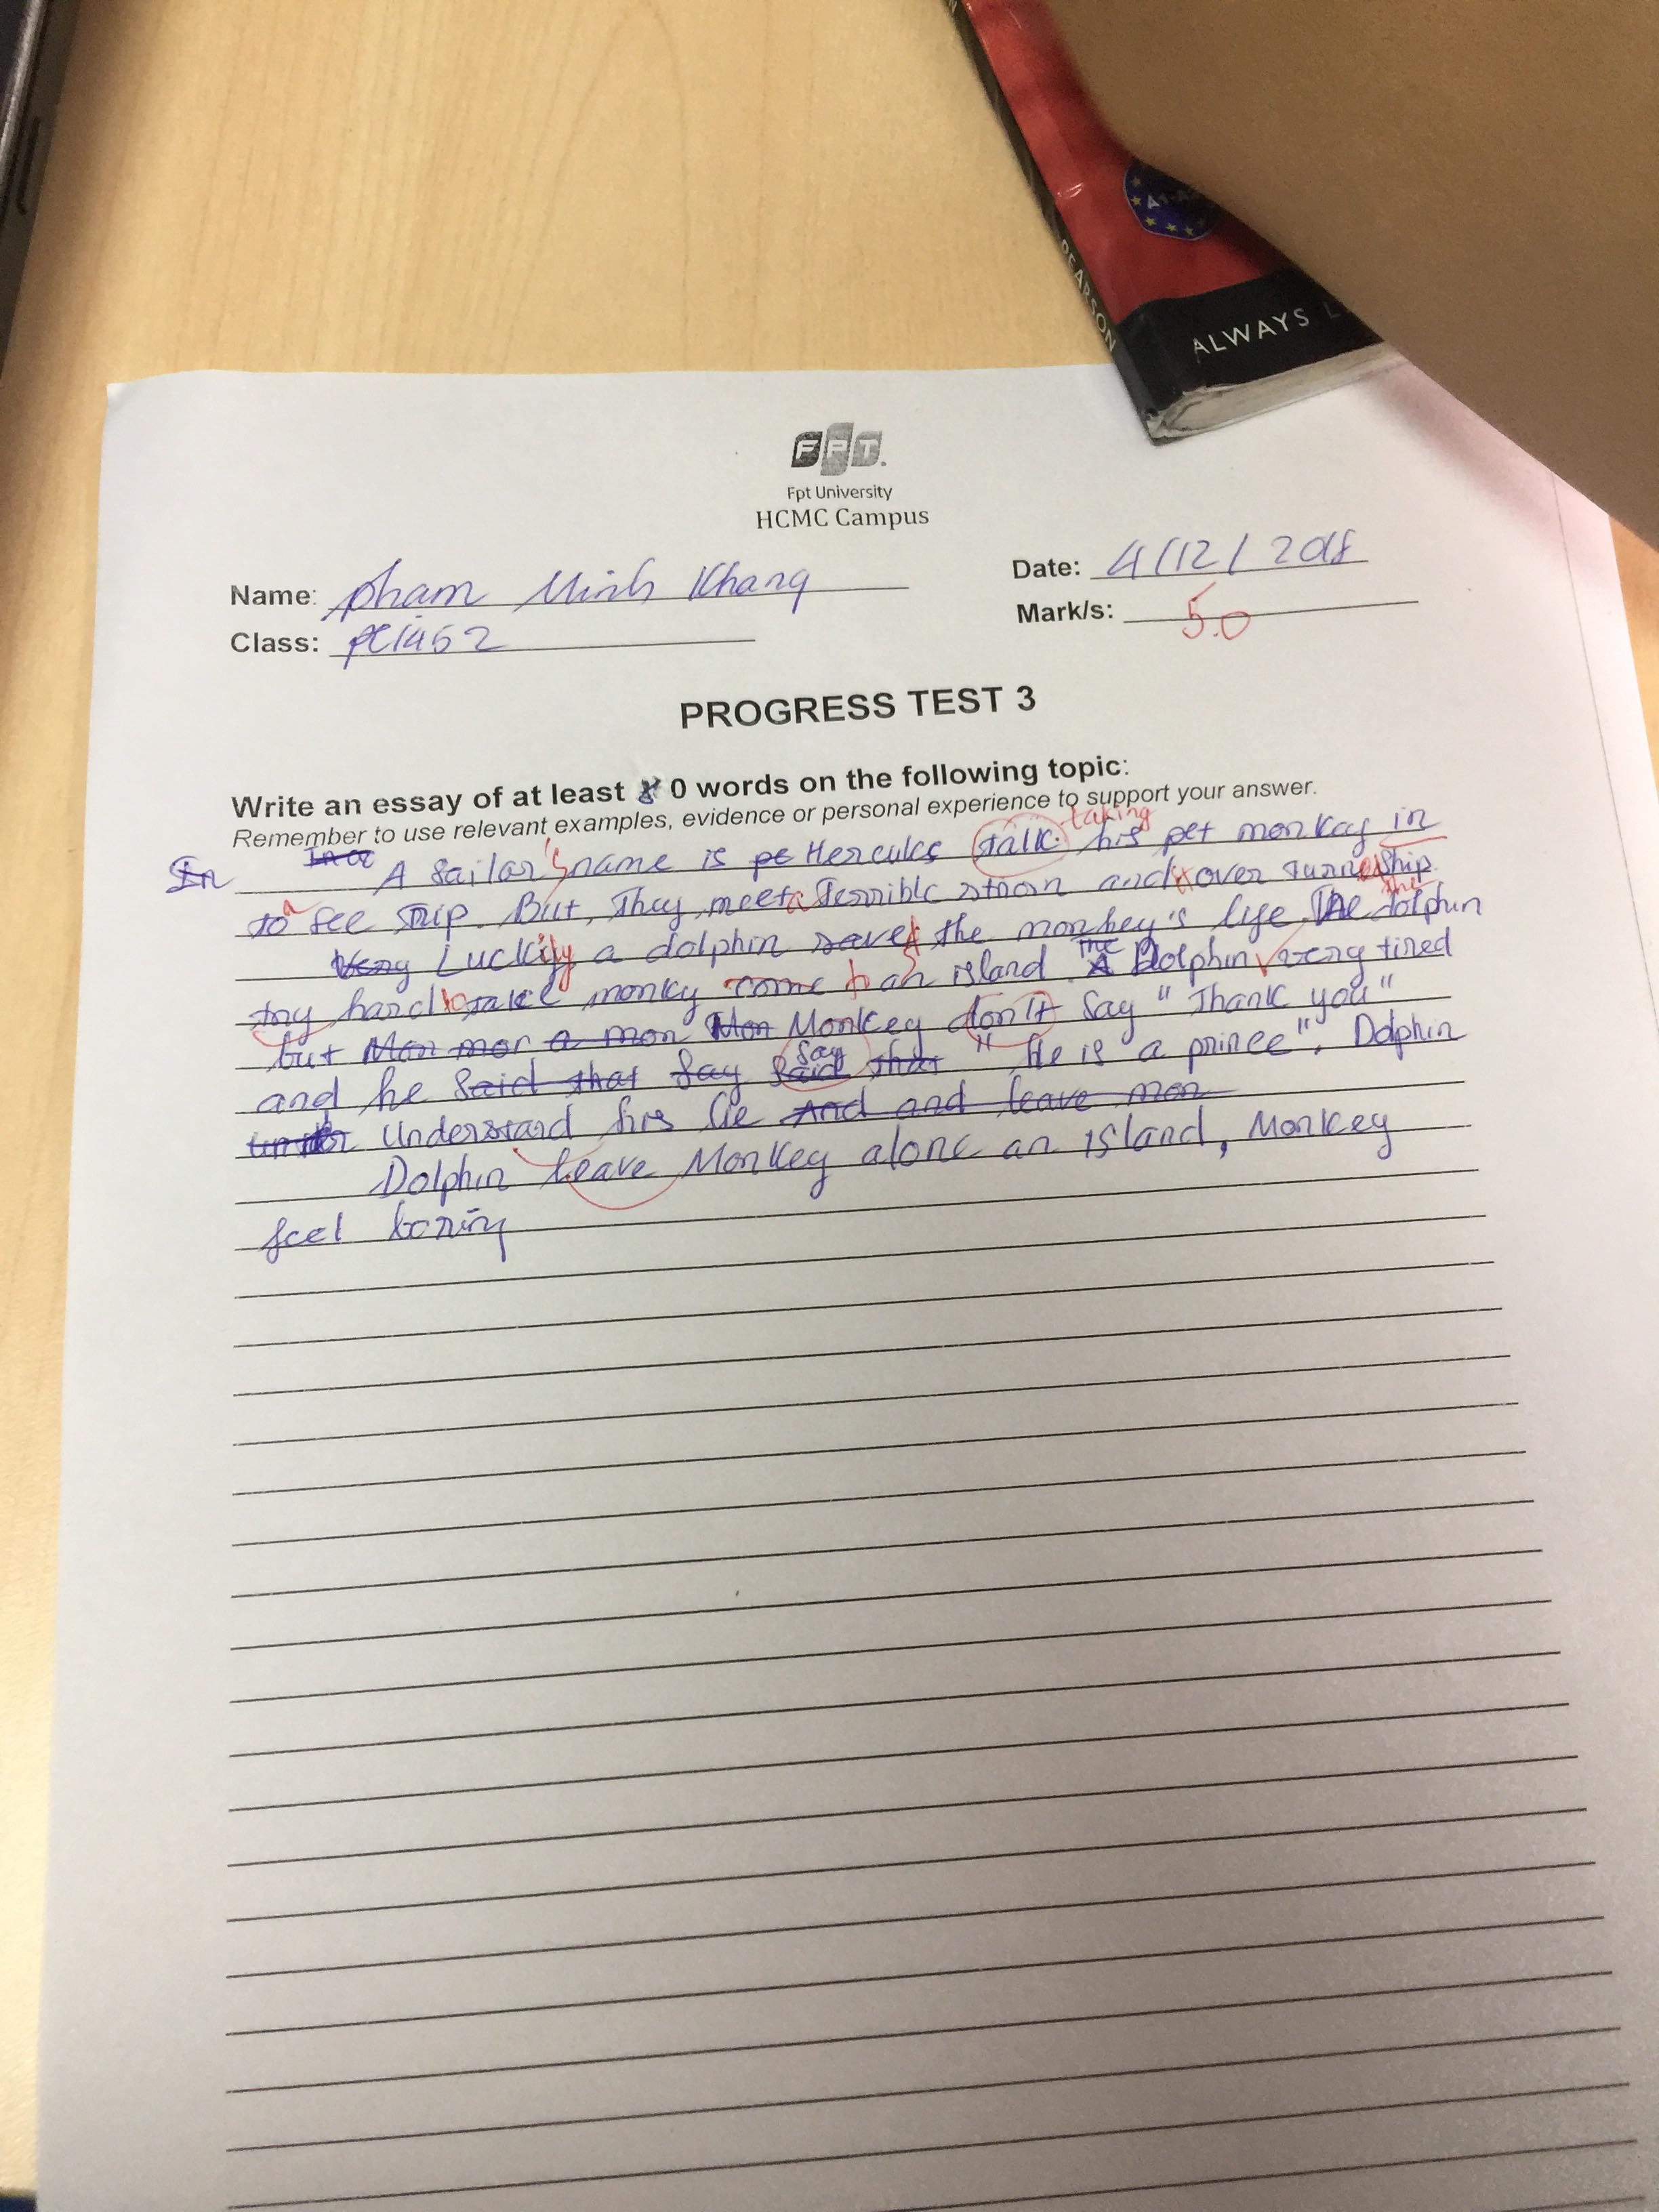 PEARSON
ALWAYS L
FPT.
Fpt University
HCMC Campus
Name: phạm Minh Khang
Date: 4/12/2018
Class:
Mark/s: 5.0
PROGRESS TEST 3
Write an essay of at least 80 words on the following topic:
Remember to use relevant examples, evidence or personal experience to support your answer.
taking
In A Sailor's name is Hercules talk his pet monkey in
to a see trip. But, They meet a Terrible storm and over turned ship.
Very Luckily a dolphin save the monkey's life. The the dolphin
try hard to take monky come to an island The Dolphin very tired
but Monkey don't Say " Thank you"
and he Said that Say say Said that " He is a prince". Dolphin
Understand his lie And and leave mon
Dolphin leave Monkey alone an island, Monkey
feel boring